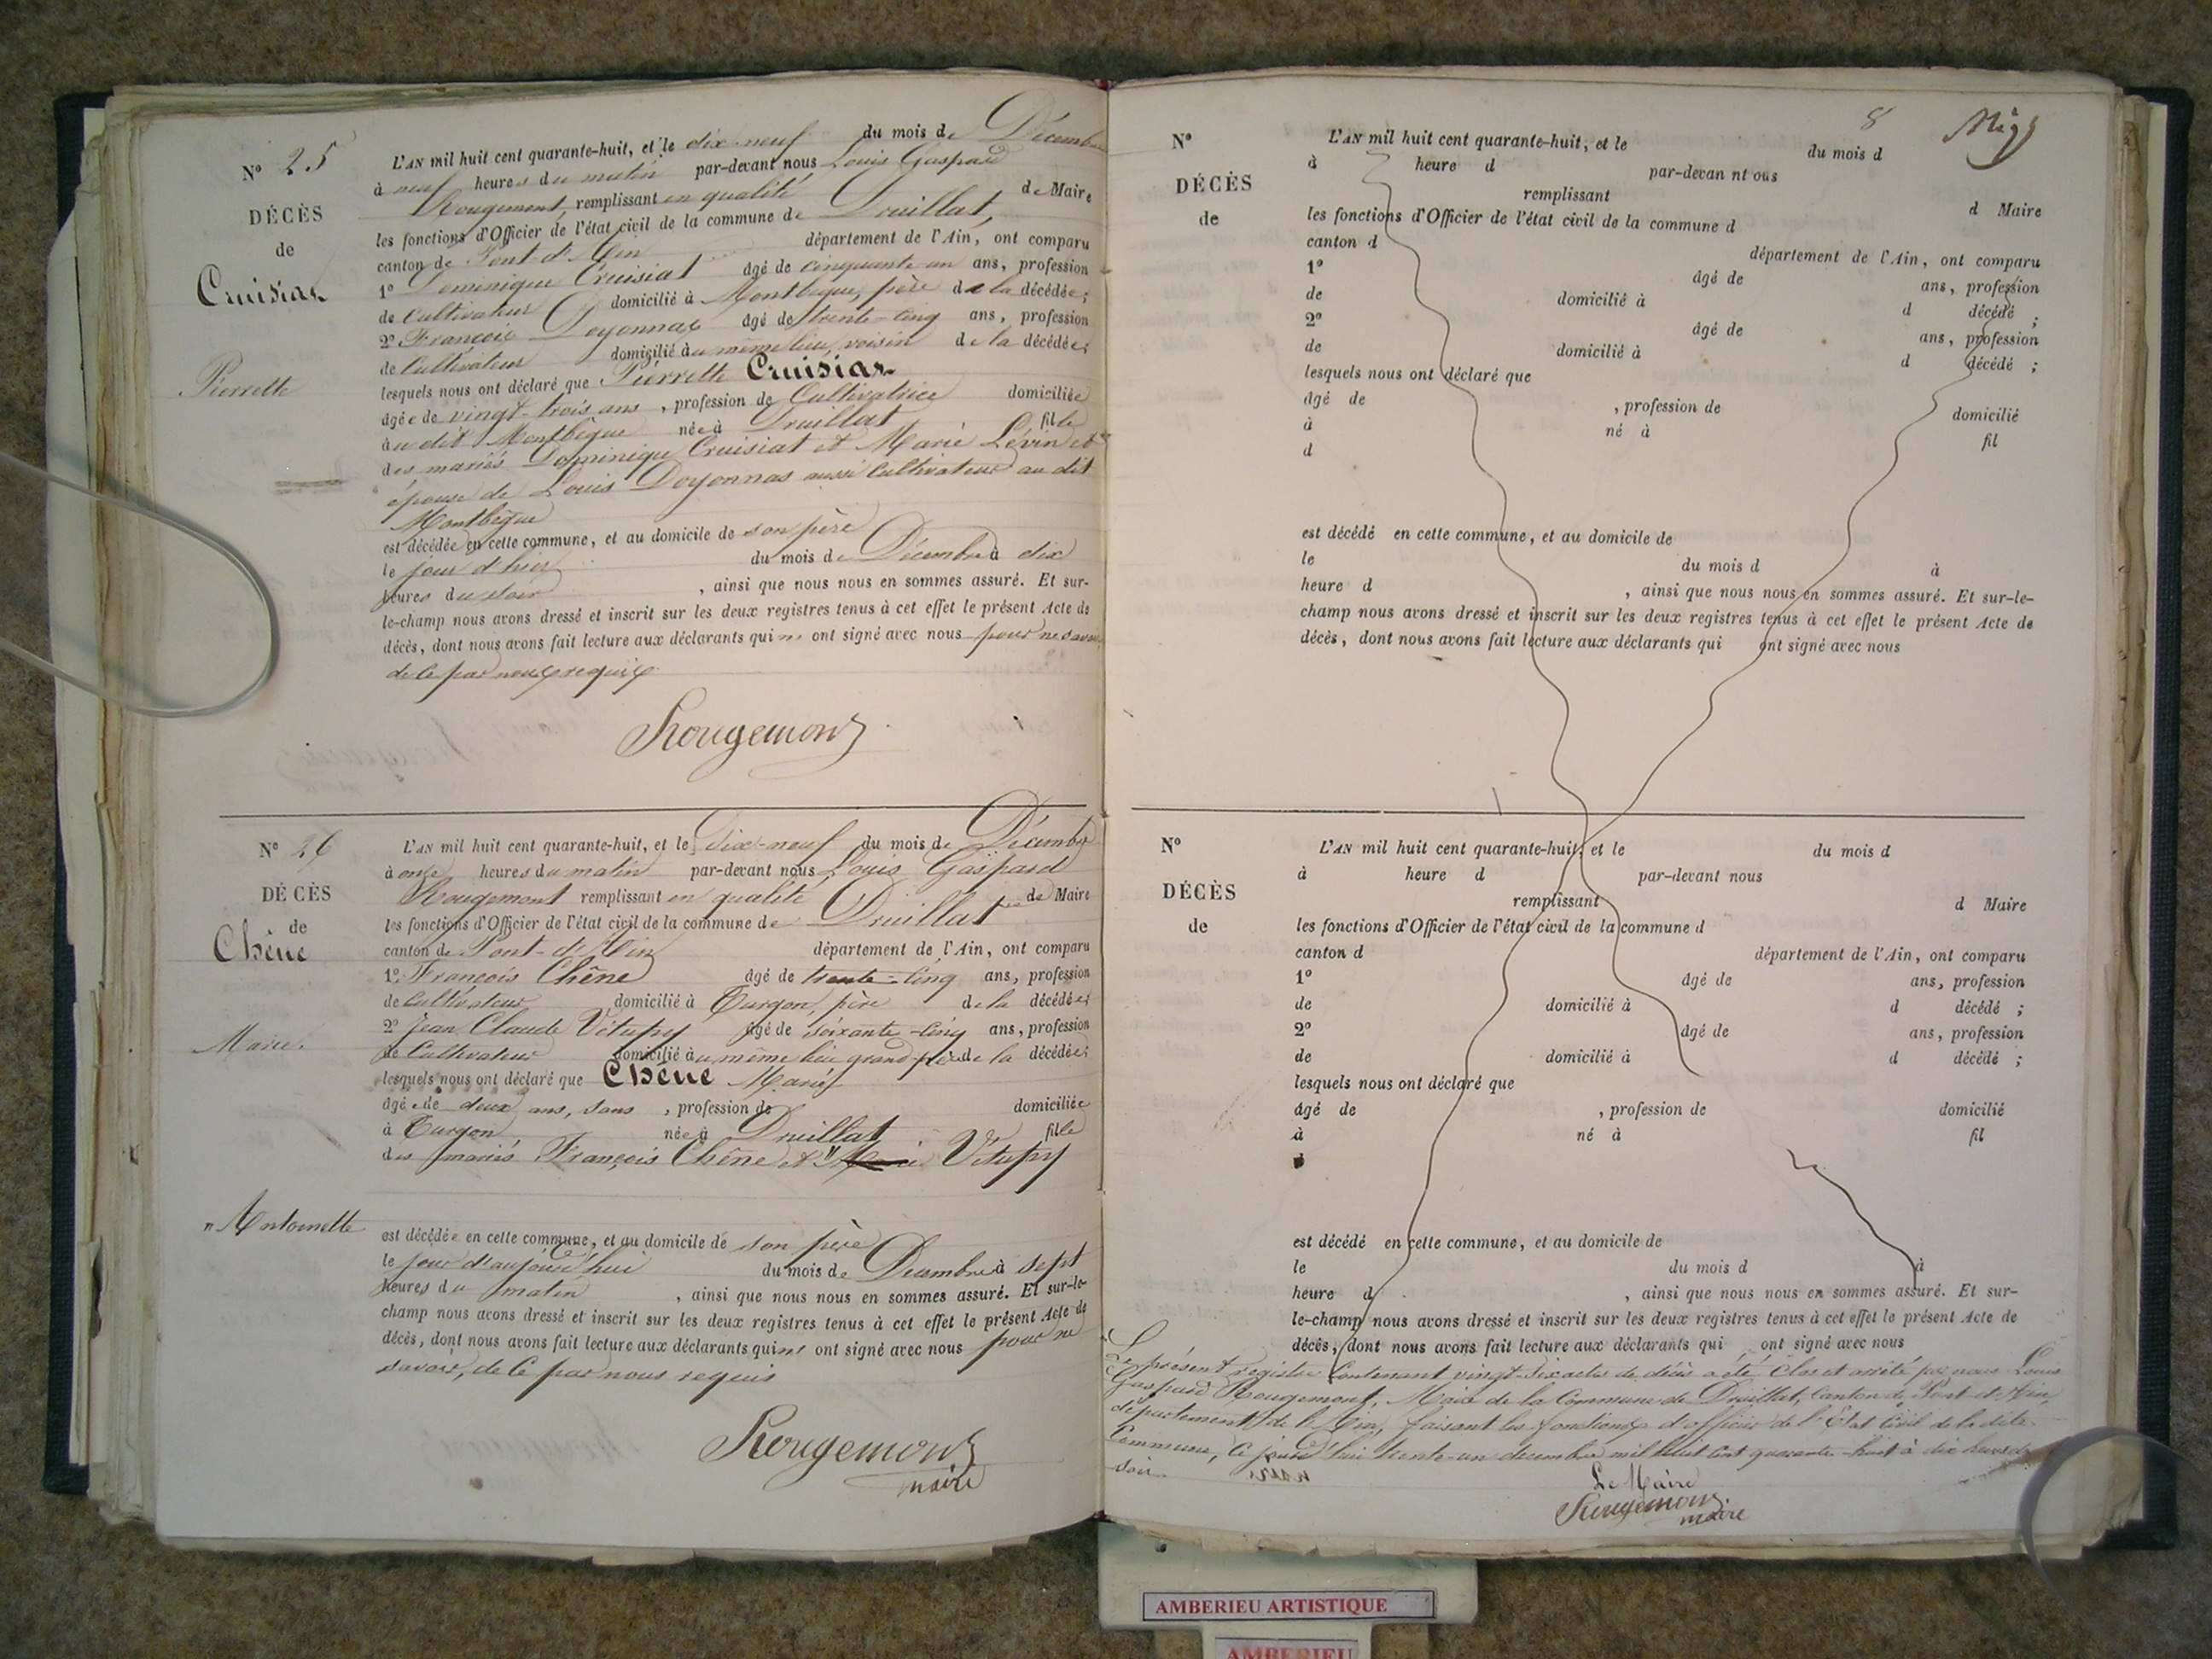 N° 25
DÉCÈS
de
Cruisiat
Pierrette
L'AN mil huit cent quarante-huit, et le dix-neuf du mois de Décembre
à neuf heures du matin par-devant nous Louis Gaspard
Rougemont, remplissant en qualité de Maire
les fonctions d'Officier de l'état civil de la commune de Druillat,
canton de Pont-d'Ain département de l'Ain, ont comparu
1° Dominique Cruisiat âgé de cinquante un ans, profession
de Cultivateur domicilié à Montbègue, père de la décédée;
2° François Doyonnax âgé de trente-cinq ans, profession
de Cultivateur domicilié au même lieu, voisin de la décédée;
lesquels nous ont déclaré que Pierrette Cruisiat
âgée de vingt-trois ans, profession de Cultivatrice domiciliée
au dit Montbègue née à Druillat fille
des mariés Dominique Cruisiat et Marie Lévin et
épouse de Louis Doyonnas aussi Cultivateur au dit
Montbègue
est décédée en cette commune, et au domicile de son père
le jour d'hier du mois de Décembre à dix
heures du soir, ainsi que nous nous en sommes assuré. Et sur-
le-champ nous avons dressé et inscrit sur les deux registres tenus à cet effet le présent Acte de
décès, dont nous avons fait lecture aux déclarants qui ne ont signé avec nous pour ne savoir,
de ce par nous requis
Rougemont
N° 26
DÉCÈS
de
Chêne
Marie
L'AN mil huit cent quarante-huit, et le Dix-neuf du mois de Décembre
à onze heures du matin par-devant nous Louis Gaspard
Rougemont remplissant en qualité de Maire
les fonctions d'Officier de l'état civil de la commune de Druillat
canton de Pont-d'Ain département de l'Ain, ont comparu
1° François Chêne âgé de trente-cinq ans, profession
de Cultivateur domicilié à Turgon, père de la décédée;
2° Jean Claude Vitupy âgé de soixante-cinq ans, profession
de Cultivateur domicilié au même lieu grand-père de la décédée;
lesquels nous ont déclaré que Chêne Marie
âgée de deux ans, sans, profession de domiciliée
à Turgon née à Druillat fille
des mariés François Chêne et " Marie Vitupy
" Antoinette
est décédée en cette commune, et au domicile de son père
le jour d'aujourd'hui du mois de Décembre à sept
heures du matin, ainsi que nous nous en sommes assuré. Et sur-le-
champ nous avons dressé et inscrit sur les deux registres tenus à cet effet le présent Acte de
décès, dont nous avons fait lecture aux déclarants qui ne ont signé avec nous pour ne
savoir, de ce par nous requis
Rougemont
maire
8
N°
DÉCÈS
de
L'AN mil huit cent quarante-huit, et le du mois d
à heure d par-devan nt ous
remplissant d Maire
les fonctions d'Officier de l'état civil de la commune d
canton d département de l'Ain, ont comparu
1° âgé de ans, profession
de domicilié à d décédé ;
2° âgé de ans, profession
de domicilié à d décédé ;
lesquels nous ont déclaré que
âgé de , profession de domicilié
à né à fil
d
est décédé en cette commune, et au domicile de
le du mois d à
heure d , ainsi que nous nous en sommes assuré. Et sur-le-
champ nous avons dressé et inscrit sur les deux registres tenus à cet effet le présent Acte de
décès, dont nous avons fait lecture aux déclarants qui ont signé avec nous
N°
DÉCÈS
de
L'AN mil huit cent quarante-huit, et le du mois d
à heure d par-devant nous
remplissant d Maire
les fonctions d'Officier de l'état civil de la commune d
canton d département de l'Ain, ont comparu
1° âgé de ans, profession
de domicilié à d décédé ;
2° âgé de ans, profession
de domicilié à d décédé ;
lesquels nous ont déclaré que
âgé de , profession de domicilié
à né à fil
d
est décédé en cette commune, et au domicile de
le du mois d à
heure d , ainsi que nous nous en sommes assuré. Et sur-
le-champ nous avons dressé et inscrit sur les deux registres tenus à cet effet le présent Acte de
décès, dont nous avons fait lecture aux déclarants qui ont signé avec nous
Le présent registre contenant vingt-six actes de décès a été Clos et arrêté par nous Louis
Gaspard Rougemont, Maire de la Commune de Druillat, Canton de Pont d'Ain,
département de l'Ain, faisant les fonctions d'officier de l'État Civil de la dite
Commune, Ce jourd'hui trente-un décembre mil huit cent quarante-huit à dix heures du
soir.
Le Maire
Rougemont
maire
AMBERIEU ARTISTIQUE
AMBERIEU